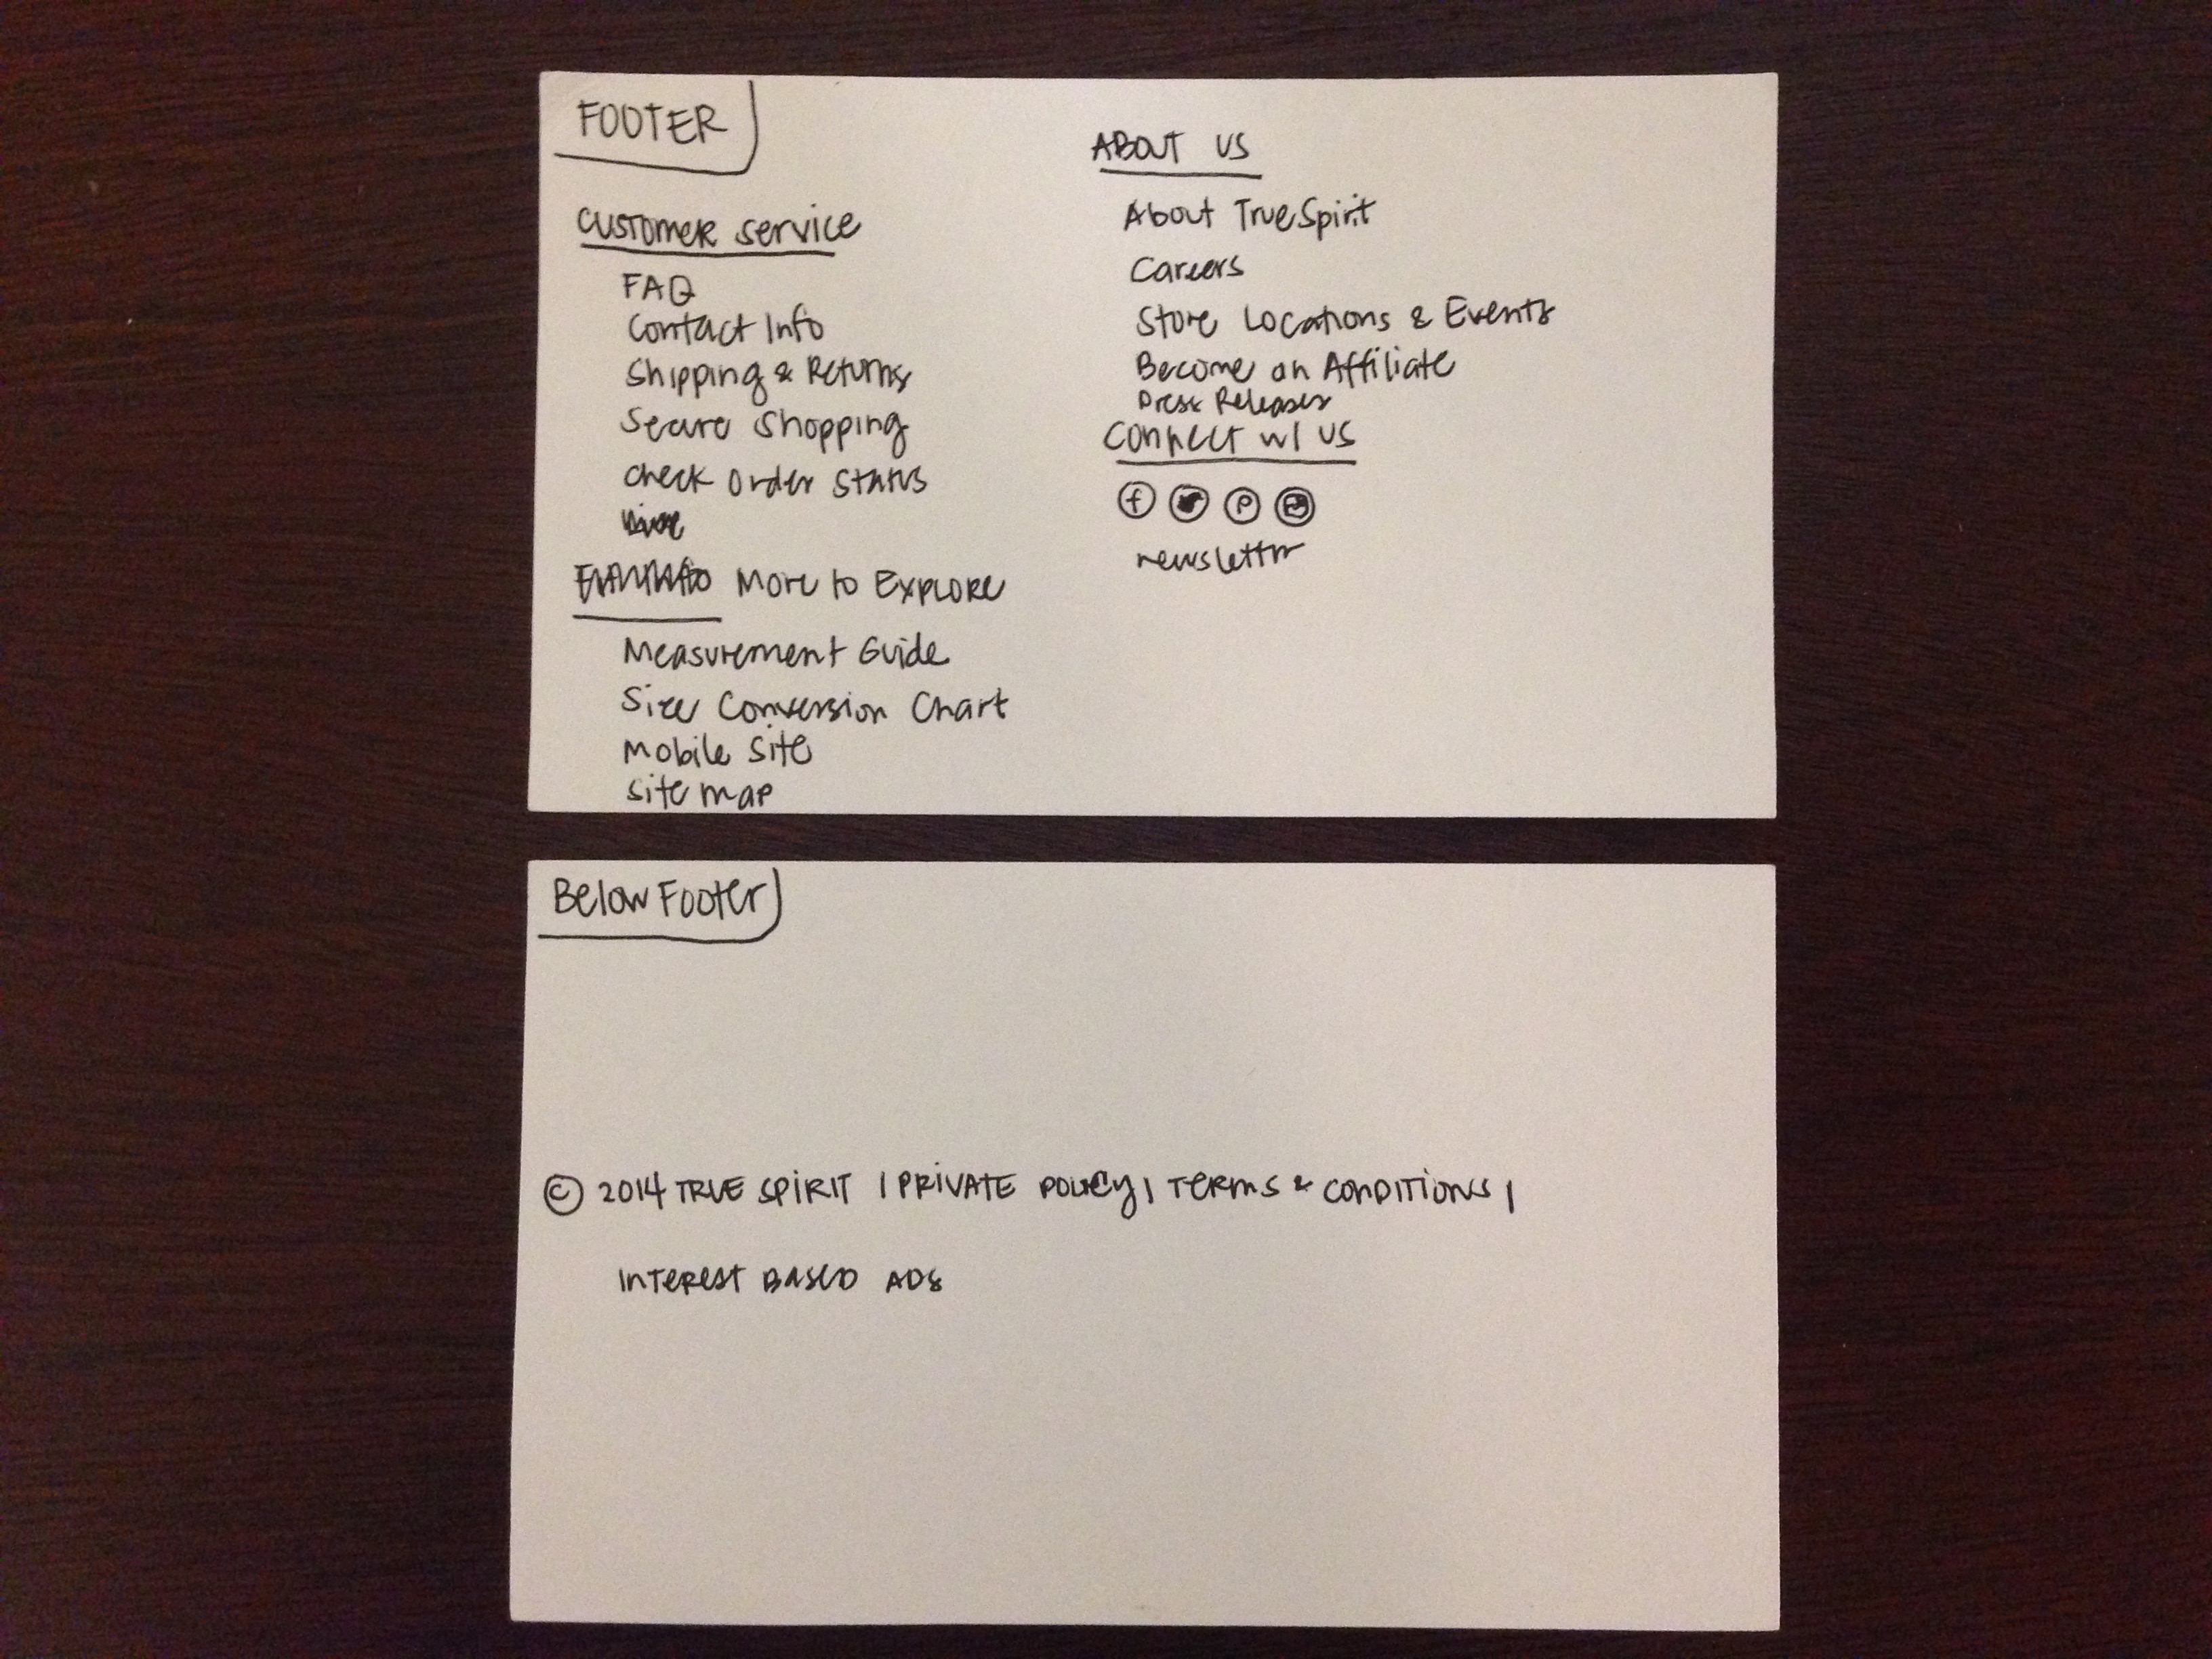 FOOTER
CUSTOMER SERVICE
FAQ
Contact Info
Shipping & Returns
Secure Shopping
Check Order Status
More to Explore
Measurement Guide
Size Conversion Chart
Mobile Site
Site map
ABOUT US
About TrueSpirit
Careers
Store Locations & Events
Become an Affiliate
Press Releases
CONNECT W/ US
f P
newsletter
Below Footer
© 2014 TRUE SPIRIT | PRIVATE POLICY | TERMS & CONDITIONS |
INTEREST BASED ADS